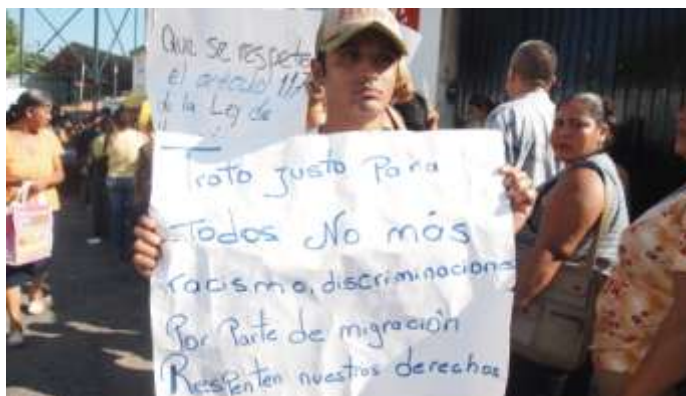 Que se respete
El artículo 117
de la Ley de
Trato justo Para
Todos No más
racismo, discriminacion
Por Parte de migración
Respenten nuestros derechos